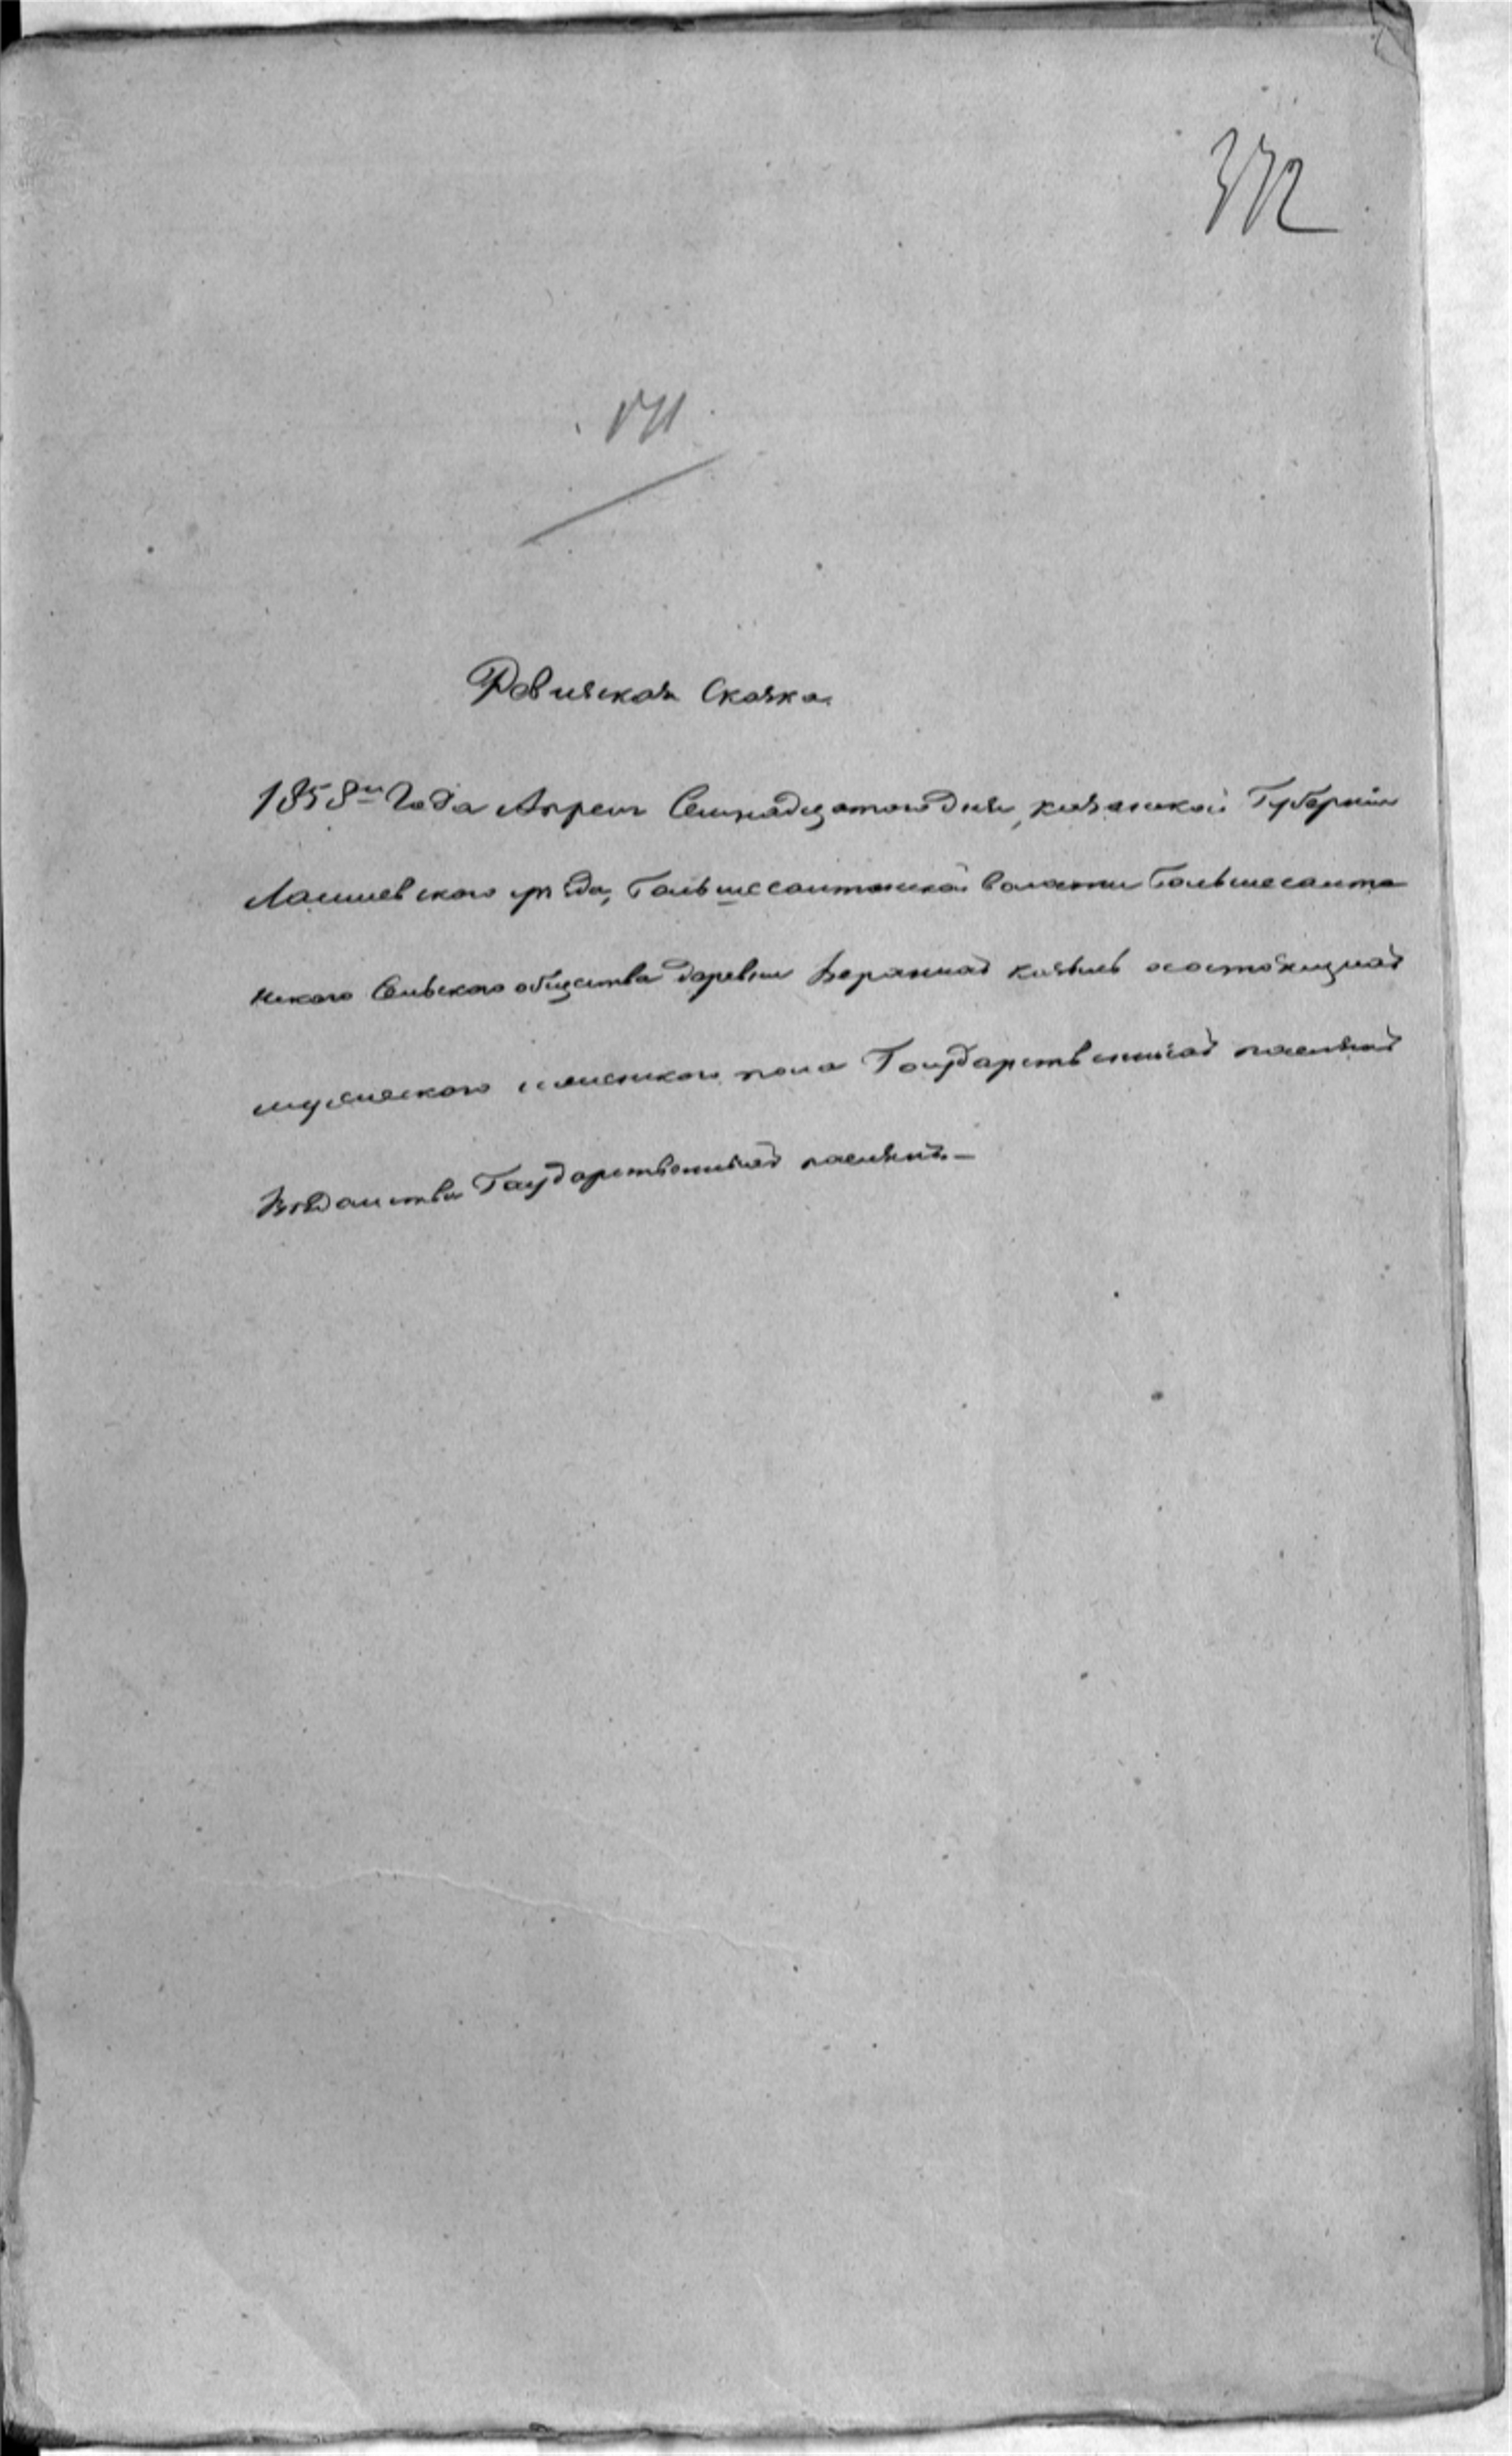 372
171
Ревизская Сказка
1858го Года Апреля Семнадцатого Дня, казанской Губернии
Лаишевского уезда, Больше саитанской волости Больше саита
нского Сельского общества деревни состоящих
мужеского и женского пола Государственных поселян
Ведомства Государственных поселян.